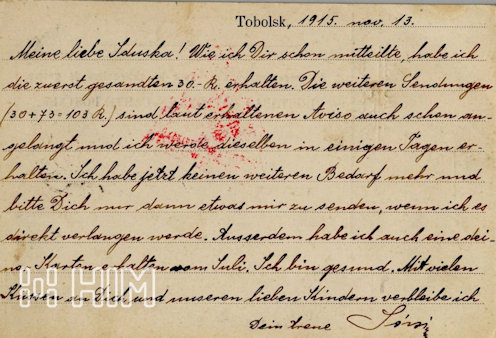 Tobolsk, 1915. nov. 13.
Meine liebe Iduska! Wie ich Dir schon mitteilte, habe ich
die zuerst gesandten 30.- R. erhalten. Die weiteren Sendungen
(30+73=103 R.) sind laut erhaltenen Aviso auch schon an-
gelangt und ich werde dieselben in einigen Tagen er-
halten. Ich habe jetzt keinen weiteren Bedarf mehr und
bitte Dich nur dann etwas mir zu senden, wenn ich es
direkt verlangen werde. Ausserdem habe ich auch eine dei-
ne Karten erhalten vom Juli. Ich bin gesund. Mit vielen
Küssen an Dich und unseren lieben Kindern verbleibe ich
Dein treue
HIM